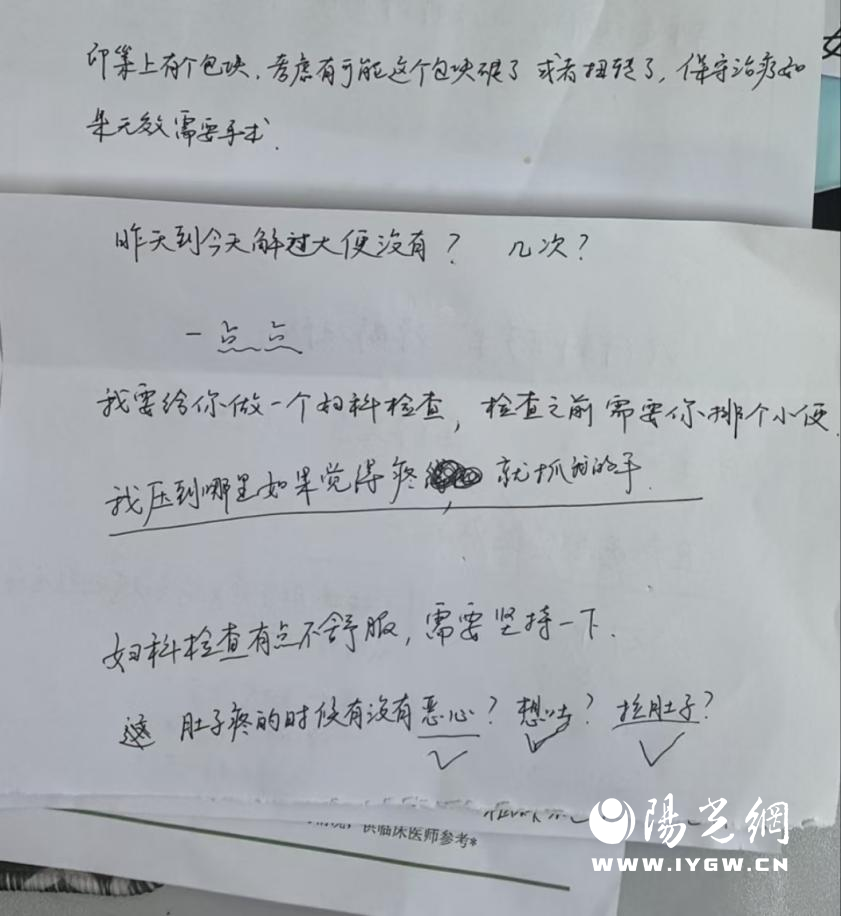 印象上有个包块,考虑有可能这个包块破了 或者扭转了,保守治疗如
果无效需要手术.
昨天到今天解过大便没有? 几次?
一点点
我要给你做一个妇科检查,检查之前需要你排个小便.
我压到哪里如果觉得疼 就抓我的手.
妇科检查有点不舒服,需要坚持一下.
肚子疼的时候有没有恶心? 想吐? 拉肚子?
供临床医师参考*
陽光網
WWW.IYGW.CN